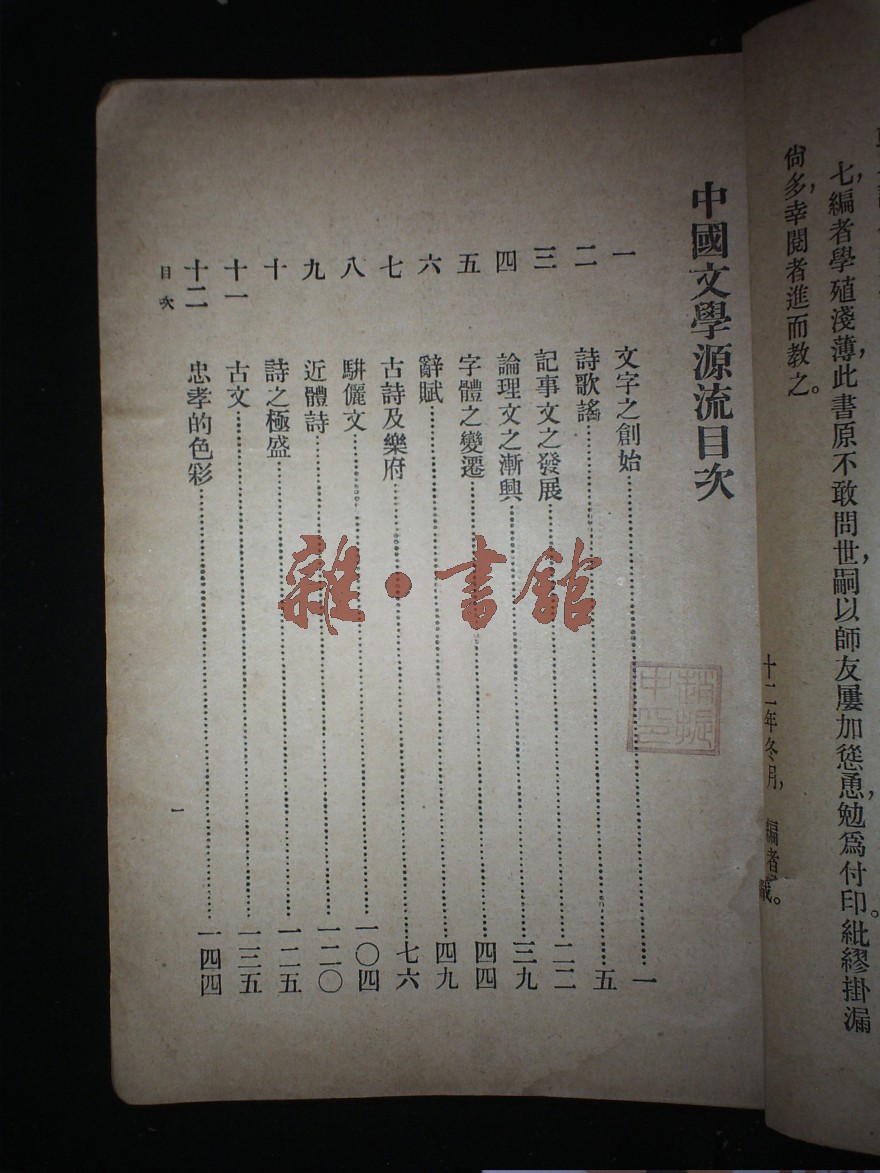 七,編者學殖淺薄,此書原不敢問世,嗣以師友屢加慫恿,勉爲付印。紕繆掛漏
尙多,幸閱者進而教之。
十二年冬月, 編者識。
中國文學源流目次
一 文字之創始 一
二 詩歌謠 五
三 記事文之發展 二二
四 論理文之漸興 三九
五 字體之變遷 四四
六 辭賦 四九
七 古詩及樂府 七六
八 駢儷文 一〇四
九 近體詩 一二〇
十 詩之極盛 一二五
十一 古文 一三五
十二 忠孝的色彩 一四四
目次
一
雜·書館